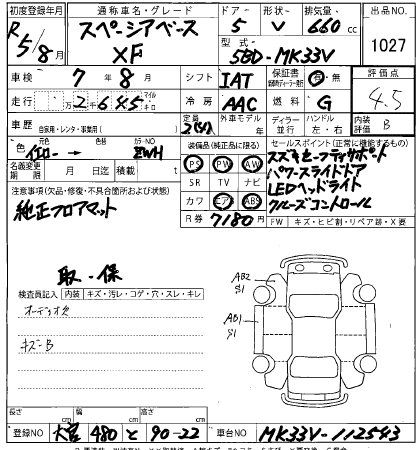 初度登録年月 通称車名・グレード ドアー 形状 排気量 出品NO
R5/8月 スペーシアベース XF 5 V 660cc 1027
型式 5BD-MK33V
車検 7年8月 シフト IAT 保証書 有・無 評価点
走行 2645 マイル キロ 冷房 AAC 燃料 G 4.5
車歴 自家用・レンタ・事業用( ) 定員 外車モデル 年 ディーラー 並行 ハンドル 左・右 内装評価 B
色 元色 → カラーNO ZWH 装備品(純正品に限る) セールスポイント(正常に機能するもの)
名義変更期限 月 日迄 積載 t PS PW AW スズキセーフティサポート
注意事項(欠品・修復・不具合箇所および状態) SR TV ナビ パワースライドドア
純正フロアマット カワ エアB ABS LEDヘッドライト
R券 7180円 クルーズコントロール
FW キズ・ヒビ割・リペア跡・X
取・保
検査員記入 内装 キズ・汚レ・コゲ・穴・スレ・キレ
オーディオ欠
キズ-B
AB2
S1
AB1
S1
長さ cm 幅 cm 高さ cm
登録NO 大宮 480 と 90-22 車台NO MK33V-112543